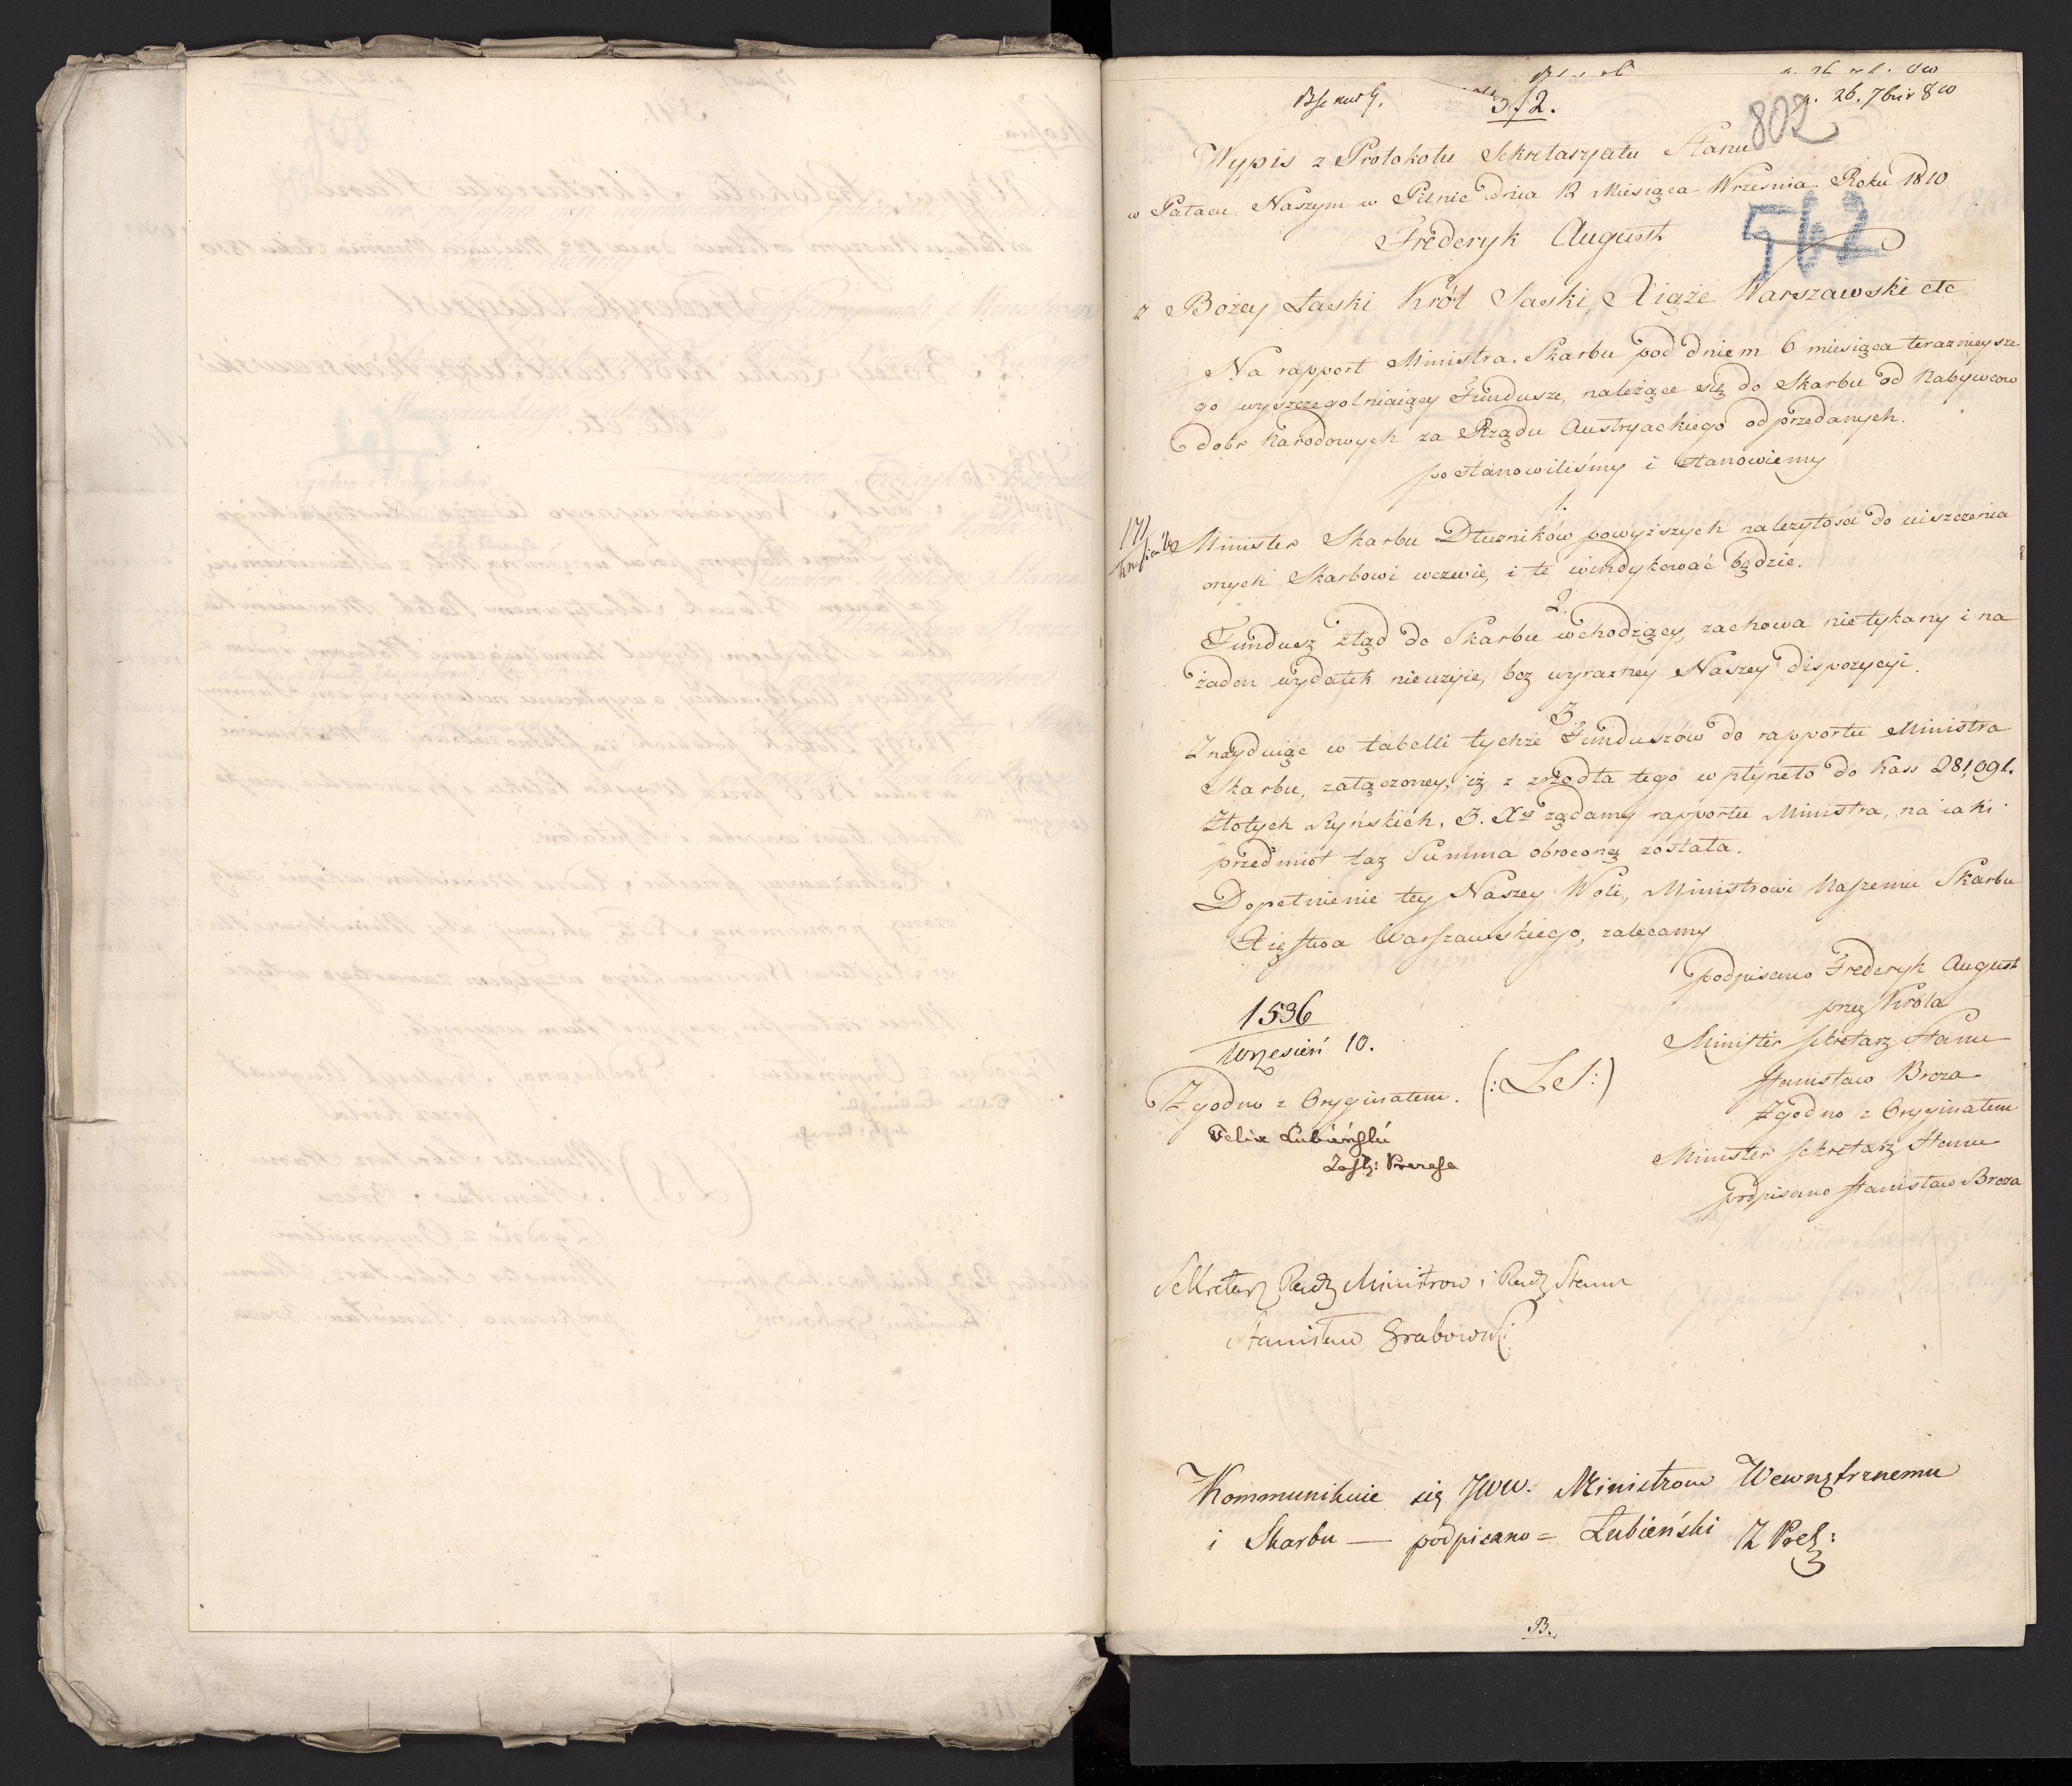 342.
26. 7bris 810
802
Wypis z Protokołu Sekretaryatu Stanu
w Pałacu Naszym w Pilnic dnia 12 Miesiąca Września Roku 1810
562
Frederyk August
z Bożey Łaski Król Saski, Xiąże Warszawski etc
Na rapport Ministra Skarbu pod dniem 6 miesiąca teraznieysze
go wyszczegolniaiący Fundusze, należące się do Skarbu od Nabywcow
dobr Narodowych za Rządu Austryackiego odprzedanych.
postanowiliśmy i stanowiemy
1.
171
Minister Skarbu Dłużników powyższych należytości do uiszczenia
onych Skarbowi wezwie, i te windykować bądzie.
2.
Fundusz ztąd do Skarbu wchodzący, zachowa nietykany i na
żaden wydatek nieużyie, bez wyrazney Naszey dispozycyi.
3.
Znayduiąc w tabelli tychże Funduszów do rapportu Ministra
Skarbu, załączoney, iż z zrzodła tego wpłyneło do Kass 281,091.
Złotych Ryńskich, 3. Xr żądamy rapportu Ministra, na iaki
przedmiot taz Summa obroconą została.
Dopełnienie tey Naszey Woli, Ministrowi Naszemu Skarbu
Xięstwa Warszawskiego, zalecamy
podpisano Frederyk August
przez Króla
Minister Sekretarz Stanu
Stanisław Breza
Zgodno z Oryginałem
Minister Sekretarz Stanu
podpisano Stanisław Breza
1536
Wrzesień 10.
Zgodno z Oryginałem. (:LS:)
Felix Łubieński
Zastę: Prezesa
Sekretarz Rady Ministrow i Rady Stanu
Stanisław Grabowski
Kommunikuie się JWW. Ministrom Wewnętrznemu
i Skarbu — podpisano = Łubieński Z Prez:
B.